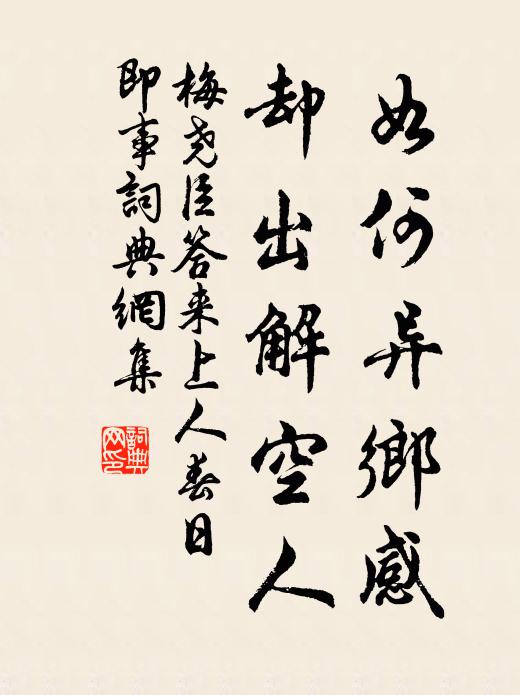 如何异鄉感
却出解空人
梅尧臣答来上人春日
即事詞典網集
詞典
网印